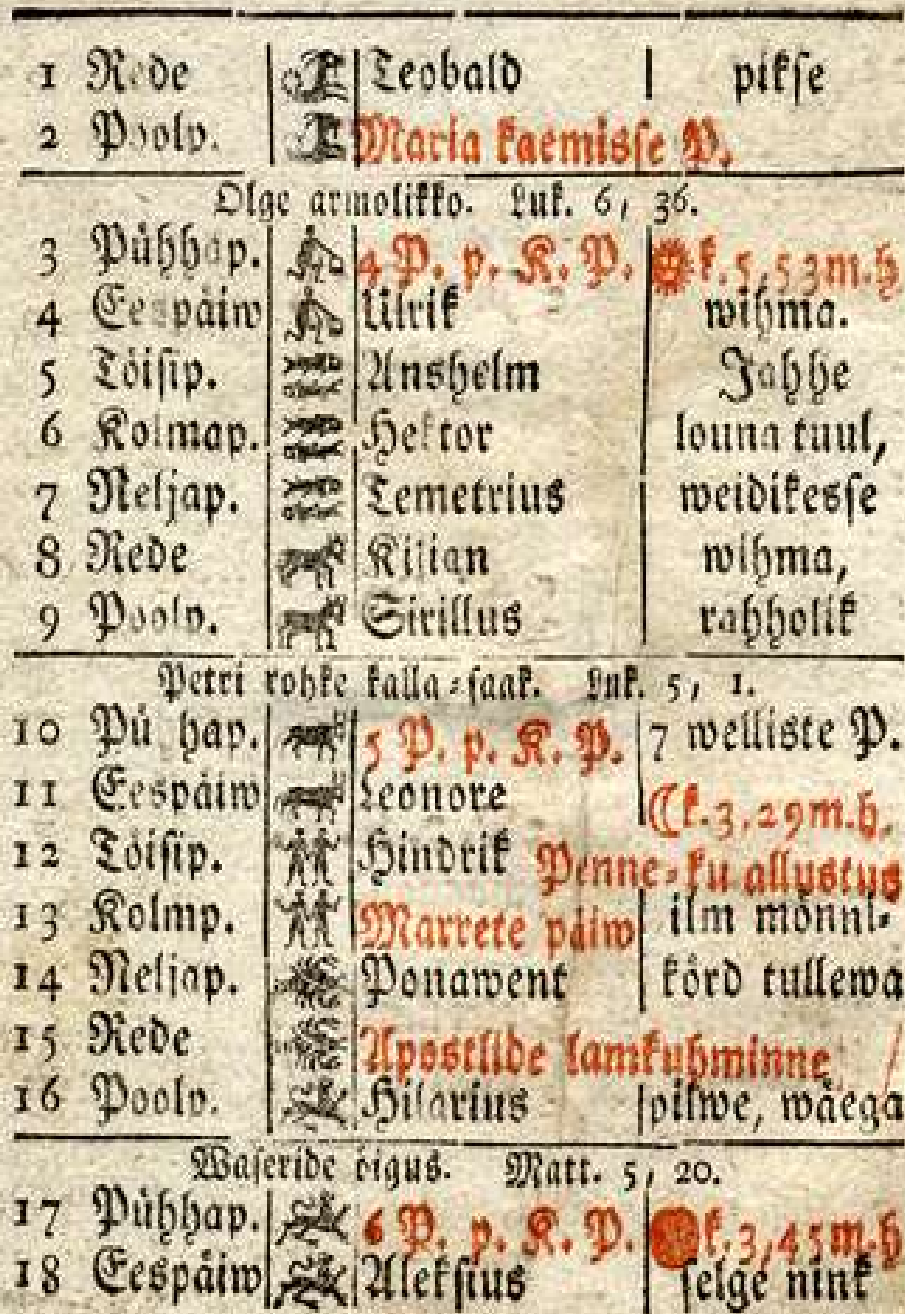 1 Rede Teobald pikse
2 Poolp. Maria kaemisse P.
Olge armolikko. Luk. 6, 36.
3 Pühhap. 4 P. p. K. P. k. 5, 53 m. h
4 Eespäiw Ulrik wihma.
5 Tõisip. Anshelm Jahhe
6 Kolmap. Hektor louna tuul,
7 Neljap. Temetrius weidikesse
8 Rede Kilian wihma,
9 Poolp. Sirillus rahholik
Petri rohke kalla-saak. Luk. 5, 1.
10 Pühhap. 5 P. p. K. P. 7 welliste P.
11 Eespäiw Leonore k. 3, 29 m. h.
12 Tõisip. Hindrik Penne-ku allustus
13 Kolmp. Marrete päiw ilm mõnni-
14 Neljap. Ponawent kõrd tullewa
15 Rede Apostlide lamkuhminne
16 Poolp. Hilarius pilwe, wäega
Waseride õigus. Matt. 5, 20.
17 Pühhap. 6 P. p. K. P. k. 3, 45 m. h
18 Eespäiw Aleksius selge nink